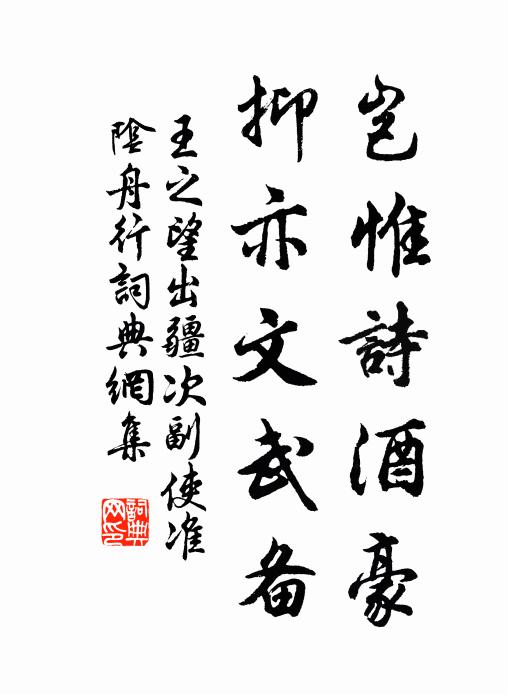 豈惟詩酒豪
抑亦文武备
王之望出疆次副使淮
陰舟行詞典網集
詞典
网印